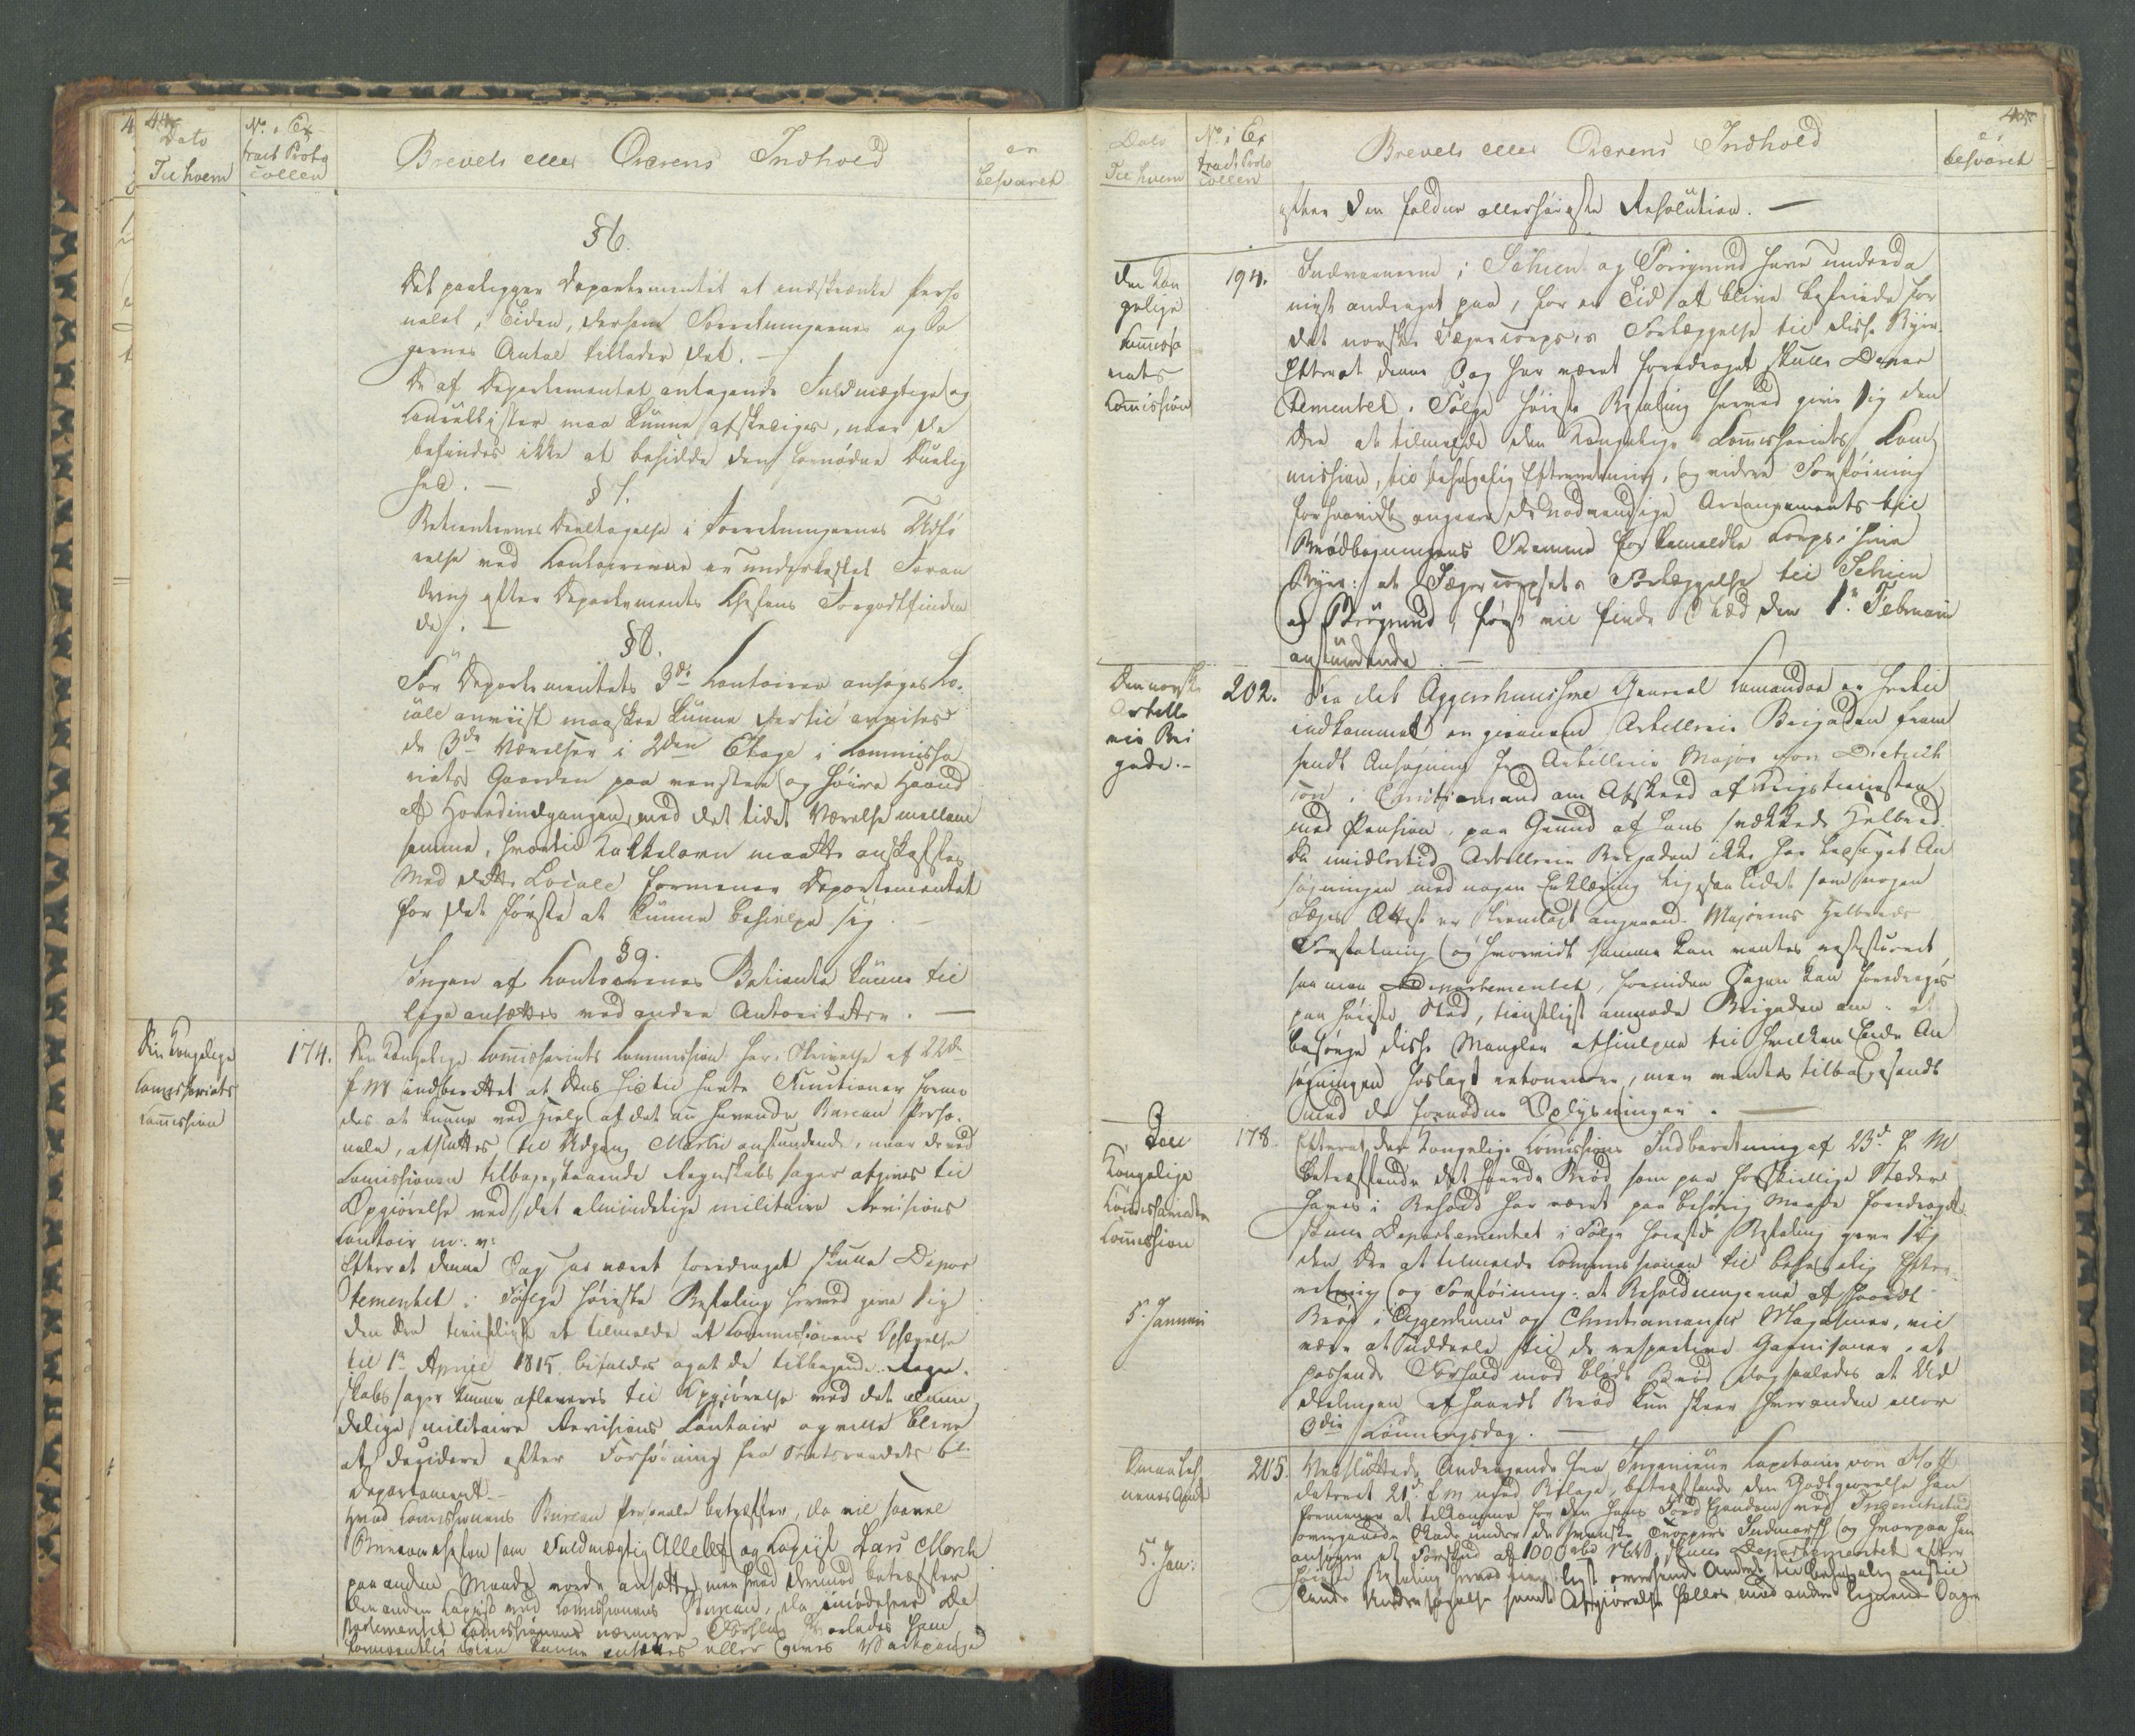 44
Dato
Til hvem
No. i Ex
tract Proto
collen
Brevets eller Ordrens Indhold
er
besvaret
§ 6.
Det paaligger Departementet at indskrænke Perso
nalet, i Tiden, dersom Forretningernes og Sa
gernes Antal tillader det. —
De af Departementet antagende Fuldmægtige og
Canzellister maa kunne afskediges, naar de
befindes ikke at besidde den fornødne Duelig
hed. —
§ 7.
Betienternes Deeltagelse i Forretningernes Udfø
relse ved Contoirerne er underkastet Foran
dring efter Departements Chefens Forgodtfinden
de. —
§ 8.
For Departementets 3de Contoirer ansøges Lo-
cale anviist maaskee kunne dertil anvises
de 3de Værelser i 2den Etage i Commissa
riats Gaarden paa venstre og høire Haand
af Hovedindgangen, med det lidet Værelse mellem
samme, hvortil Kakkelovn maatte anskaffes
Med dette Locale formener Departementet
for det første at kunne behielpe sig. —
§ 9.
Ingen af Contoirernes Betiente kunne til
lige ansættes ved andre Autoriteter. —
Den Kongelige
Commissariats
Commission
174.
Den Kongelige Commissariats Commission har i Skrivelse af 22de
f. M. indberettet at dens hidtil havte Functioner forme
des at kunne ved Hielp af det nu havende Bureau Perso-
nale, afsluttes til Udgang Martii anstundende, naar de ved
Commissionen tilbagestaaende Regnskabs sager afgives til
Opgiørelse ved det almindelige militaire Revisions
Contoir m: v:
Efterat denne Sag har været foredraget skulle Depar
tementet i Følge høieste Befaling herved give sig
den Ære tienstligst at tilmelde at Commissionens Ophævelse
til 1te April 1815 bifaldes og at de tilliggende Regn-
skabs sager kunne afleveres til Opgiørelse ved det almin
delige militaire Revisions Contoir og ville blive
at decidere efter Forføining fra Statsraadets 6te
Departement. —
Hvad Commissionens Bureau Personale betræffer, da vil saavel
Bureauchefen som Fuldmægtig Allelef og Copiist Lars Morch
paa anden Maade vorde ansatte, men hvad derimod betræffer
den anden Copiist ved Commissionens Bureau, da imødesees De
partementet Commissionens nærmere Forslag hvorledes ham
formeentlig igien kunne ansættes eller gives Vartpenge
45
Dato
Til hvem
No. i Ex
tract Proto
collen
Brevets eller Ordrens Indhold
er
besvaret
efter den faldne allerhøieste Resolution. —
Den Kon
gelige
Commissa
riats
Commission
194.
Indvaanerne i Schien og Porsgrund have underda
nigst andraget paa, for en Tid at blive befriede for
det norske Jægercorps's Forlæggelse til disse Byer.
Efterat denne Sag har været foredraget skulle Depar
tementet i Følge høieste Befaling herved give sig den
Ære at tilmelde den Kongelige Commissariats Com
mission, til behagelig Efterretning, og videre Forføining
forsaavidt angaaer de nødvendige Arrangements til
Brødbagningens Fremme for bemeldte Corps i hine
Byer: at Jægercorpsets Forlæggelse til Schien
og Porsgrund, først vil finde Sted den 1te Februarii
anstundende. —
Den norske
Artille
rie Bri
gade. —
202.
Fra det Aggershuusiske General Commando er hertil
indkommet en giennem Artillerie Brigaden frem
sendt Ansøgning fra Artillerie Major von Dietrich
son i Christiansand om Afskeed af Krigstienesten
med Pension, paa Grund af hans svækkede Helbred.
Da imidlertid Artillerie Brigaden ikke har ledsaget An
søgningen med nogen Erklæring ligesaa lidet som nogen
Læges Attest er fremlagt angaaende Majorens Helbreds
Forfatning og hvorvidt samme kan ventes restitueret
saa maa Departementet, forinden Sagen kan foredrages
paa høieste Sted, tienstligst anmode Brigaden om at
besørge disse Mangler afhiulpne til hvilken Ende An
søgningen hoslagt returneres, men ventes tilbagesendt
med de fornødne Oplysninger. —
Den
Kongelige
Commissariats
Commission
5. Januarii
178.
Efterat den Kongelige Commissions Indberetning af 23de f. M.
betræffende det haarde Brød som paa forskiellige Stæder
haves i Behold har været paa behørig Maade foredraget
skulle Departementet i Følge høieste Befaling give sig
den Ære at tilmelde Commissionen til behagelig Efter-
retning og Forføining: at Beholdningerne af haardt
Brød i Aggershuus og Christiansands Magasiner, vil
være at uddeele til de respective Garnisoner, et
passende Forhold mod blødt Brød dog saaledes at Ud
deelingen af haardt Brød kun skeer hveranden eller
3die Lønningsdag. —
5. Jan:
205.
Vedsluttede Andragende fra Ingenieur Capitaine von Hoff
dateret 21de f. M. med Bilage, betræffende den Godtgiørelse han
formener at tilkomme for den hans Jord Eiendom ved Ingerichsted
overgaaede Skade under de svenske Troppers Indmarsch og hvorpaa han
ansøger et Forskud af 1000 rbd N.V. skulle Departementet efter
høieste Befaling herved tienstligst oversende Amtet til behagelig anstil
lende Undersøgelse samt Afgiørelse fælles med andre lignende Sager